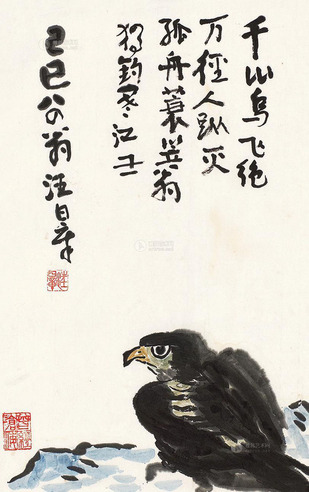 千山鸟飞绝
万徑人踪灭
孤舟蓑笠翁
独钓寒江雪
己巳公翁汪日章